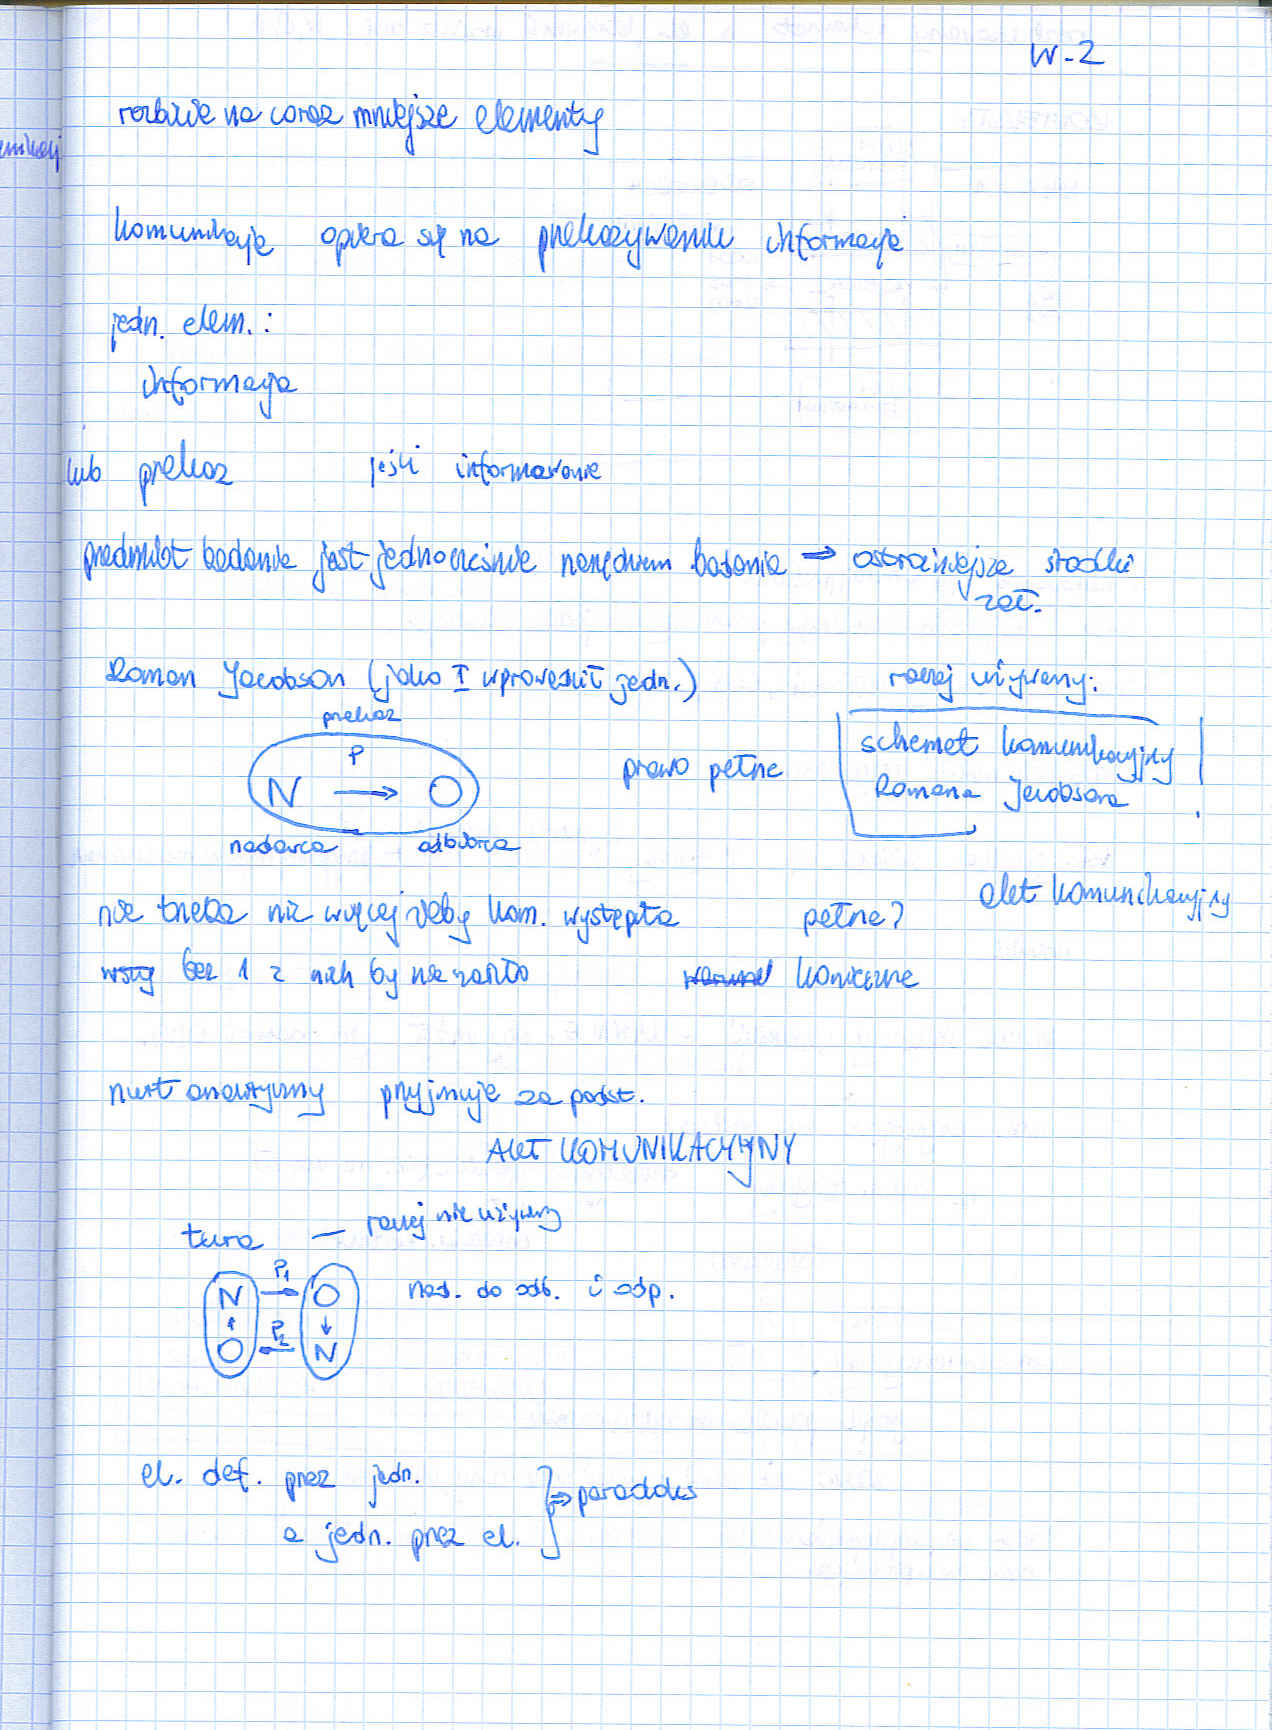 W-2
rozbicie na coraz mniejsze elementy
komunikacja opiera się na przekazywaniu informacji
jedn. elem.:
informacja
lub przekaz jeśli informowanie
przedmiot badania jest jednocześnie narzędziem badania ⇒ ostrożniejsze środki
zał.
Roman Jacobson (jako I wprowadził jedn.)
raczej używany:
przekaz
P
N → O
nadawca odbiorca
prawo pełne
schemat komunikacyjny
Romana Jacobsona
akt komunikacyjny
nie trzeba nic więcej żeby kom. wystąpiła pełne?
bez 1 z nich by nie zaszło konieczne
nurt analityczny przyjmuje za podst.
AKT KOMUNIKACYJNY
tura — raczej nie używany
P1
N → O
nad. do odb. i odp.
P2
O ← N
el. def. przez jedn.
a jedn. przez el.
⇒ paradoks